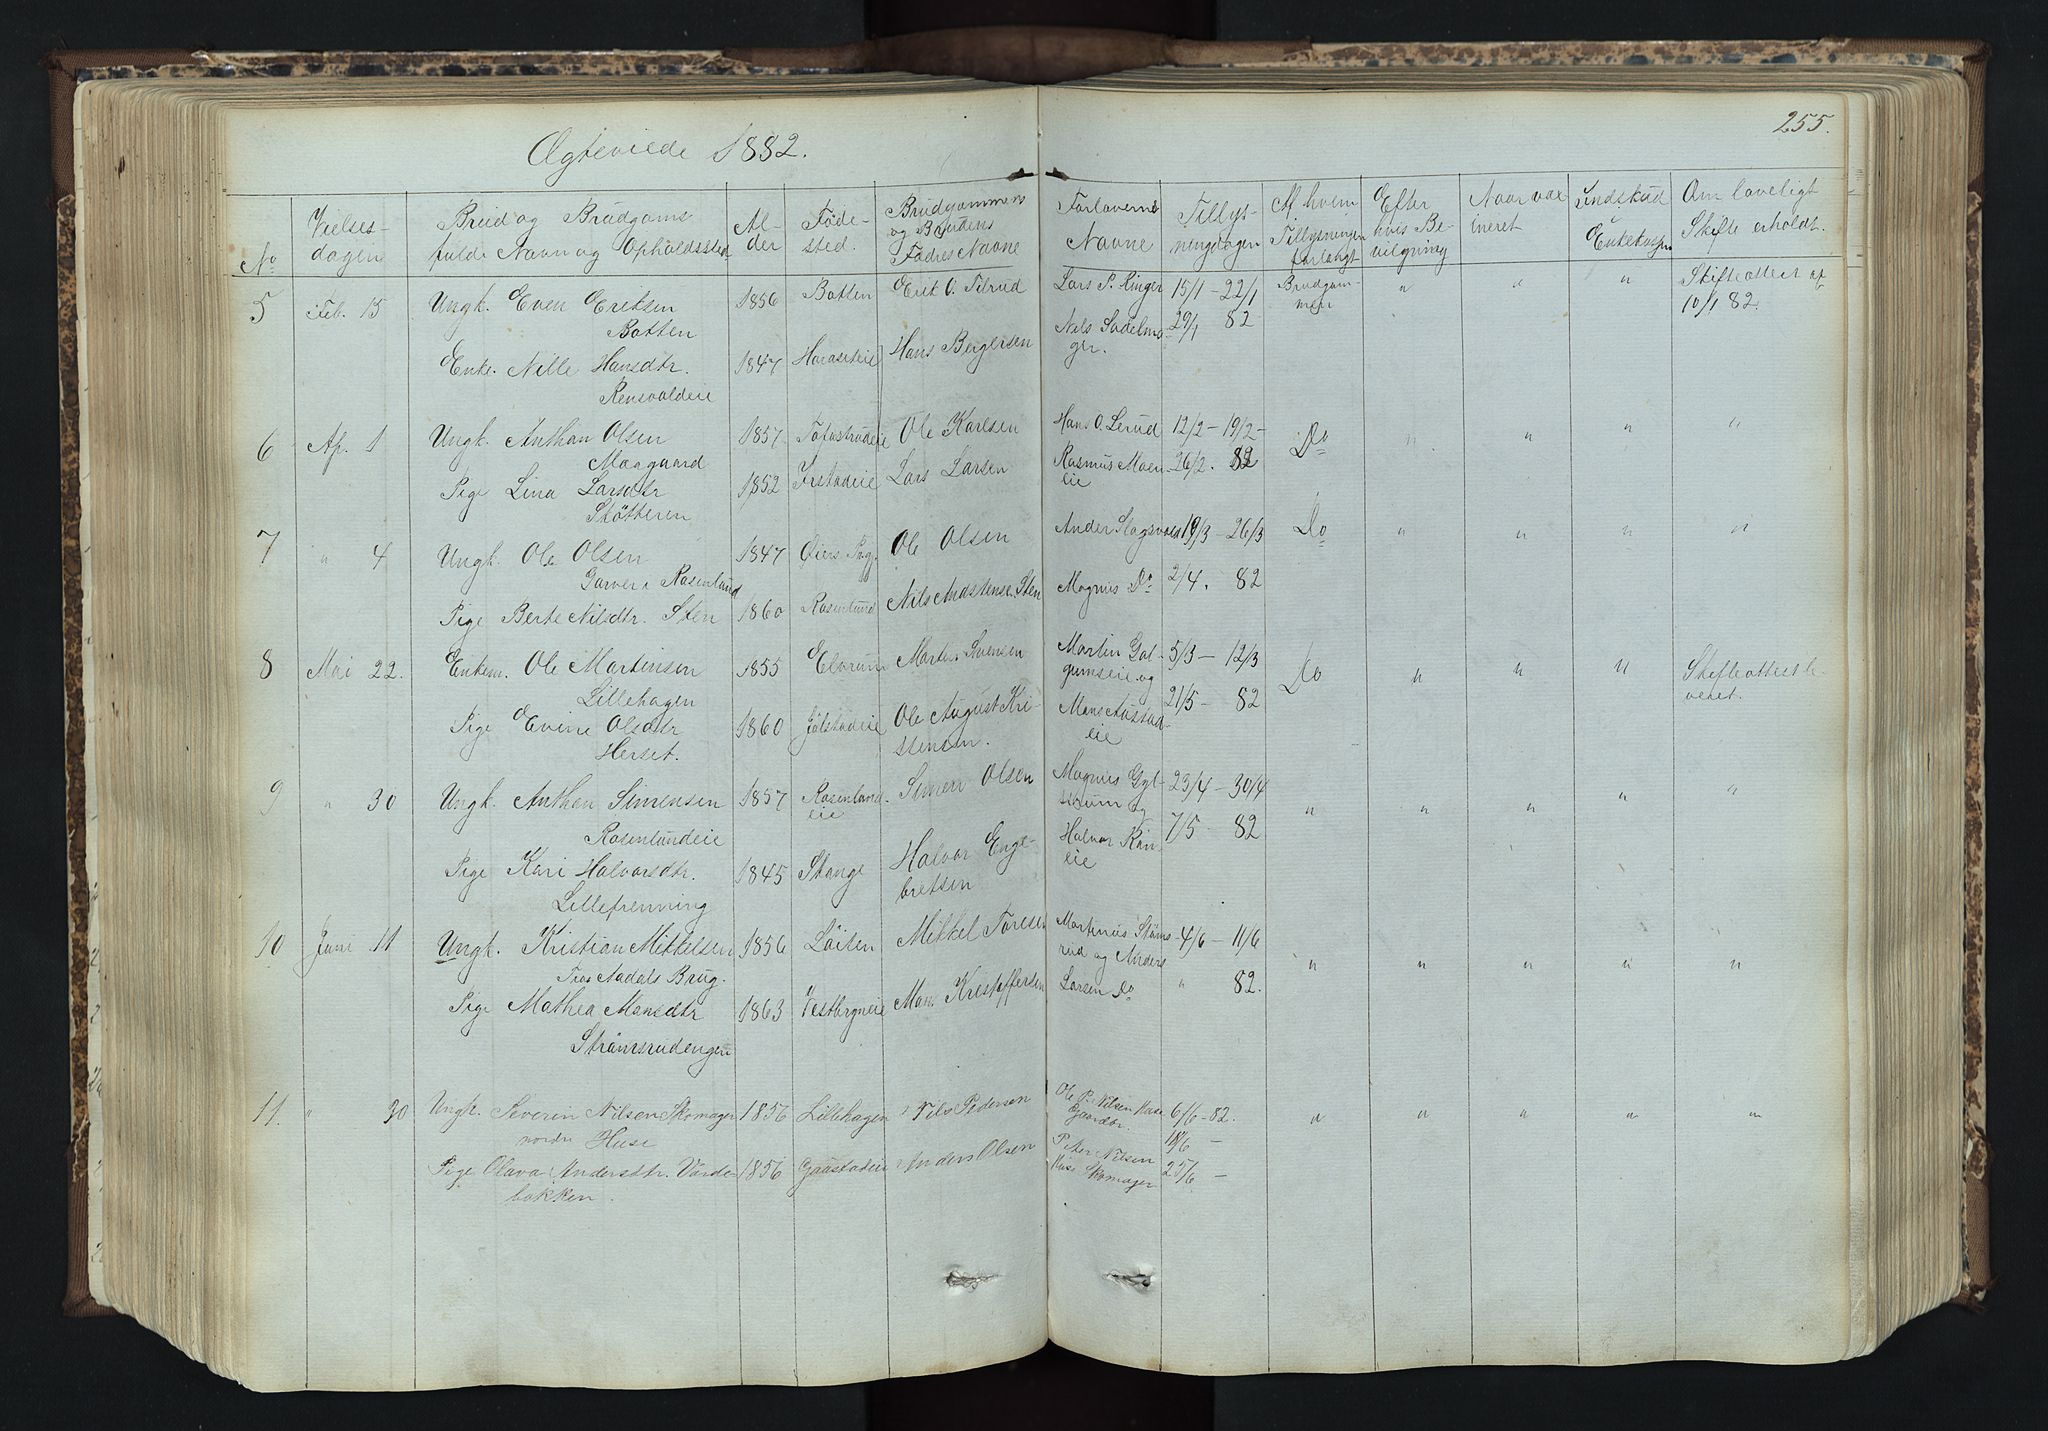 255.
Ægteviede 1882.
No
Vielses-
dagen
Brud og Brudgoms
fulde Navn og Opholdssted
Al-
der
Føde-
sted.
Brudgommens
og Brudens
Fædres Navne
Forlovernes
Navne
Tillys-
ningsdagen
Af hvem
Tillysningen
forlangt
Efter
hvis Be-
vilgning
Naar vax-
ineret
Indskud
Enkekassen
Om lovligt
Skifte erholdt.
5 Feb. 15 Ungk. Even Eriksen 1856 Botten Erik O. Tilrud Lars P. Ringer 15/1 - 22/1 Brudgom- " " " Skifteattest af
Botten Nils Sadelma- 29/1 82 men 10/1 82.
Enke. Nille Hansdtr. 1847 Hans Bergersen ger.
6 Ap. 1 Ungk. Anthon Olsen 1857 Ole Karlsen Hans O. Lerud 12/2 - 19/2 - Do " " " "
Maagaard Rasmus Moen- 26/2. 82
Pige Lina Larsdtr 1852 Lars Larsen eie
7 " 4 Ungk. Ole Olsen 1847 Øiers Pgj. Ole Olsen 19/3 - 26/3 Do " " " "
Garver i Rosenlund Magnus Do 2/4. 82
Pige Berte Nilsdtr. Sten 1860 Rosenlund Sten
8 Mai 22. Enkem. Ole Martinsen 1855 Elvrum Martin Svensen Martin Gal- 5/3 - 12/3 Do " " " Skifteattest le-
Lillehagen gumseie og 21/5 - 82 veret.
Pige Evine Olsdtr 1860 Ole August Kri-
Herset. stensen. eie
9 " 30 Ungk. Anthon Simensen 1857 Rosenlund- Simen Olsen Magnus Gyl- 23/4 - 30/4 " " " " "
Rosenlundeie eie strum og 7/5 - 82
Pige Kari Halvorsdtr. 1845 Stange Halvor Enge- Halvor
Lillefrenning bretsen eie
10 Juni 11 Ungk. Kristian Mikkelsen 1856 Löiten Mikkel Toresen Martinus Ströms- 4/6 - 11/6 " " " " "
Aadals Brug. rud og Anders
Pige Mathea Mansdtr 1863 Mans Kristoffersen Larsen Do " 82.
Strömsrudengen
11. " 30 Ungk. Severin Nilsen Skomager 1856 Lillehagen Nils Pedersen Ole P. Nilsen Huse 6/6 - 82. " " " " "
nordre Huse Gaardbr. 18/6 -
Pige Olava Andersdtr. Varde- 1856 Gaustadeie Anders Olsen Peter Nilsen 25/6 -
bakken. Huse Skomager